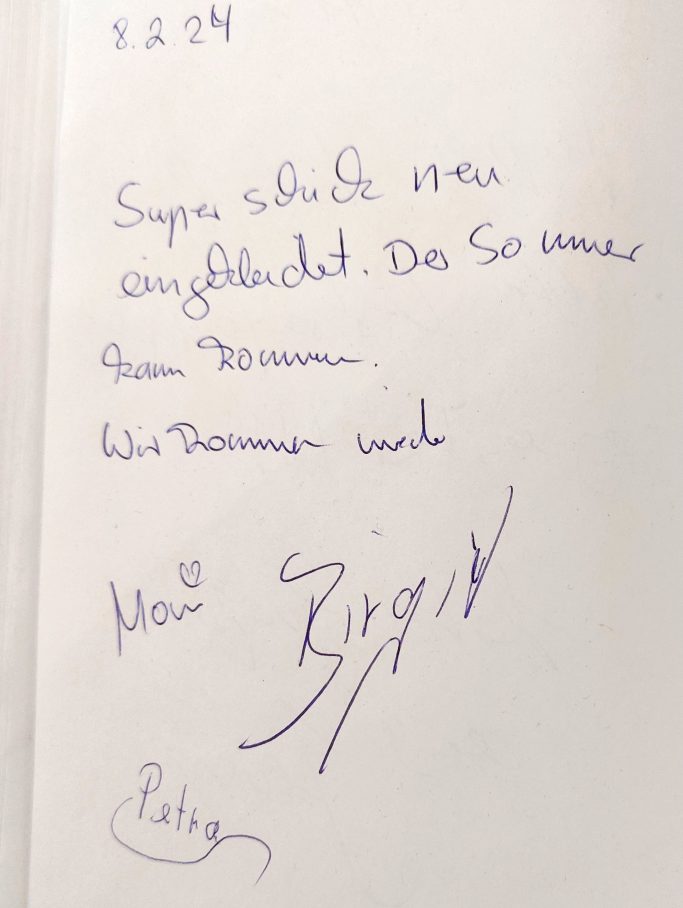 8.2.24
Super schick neu
eingekleidet. Der Sommer
kann kommen.
Wir kommen wieder
Moni
Birgit
Petra